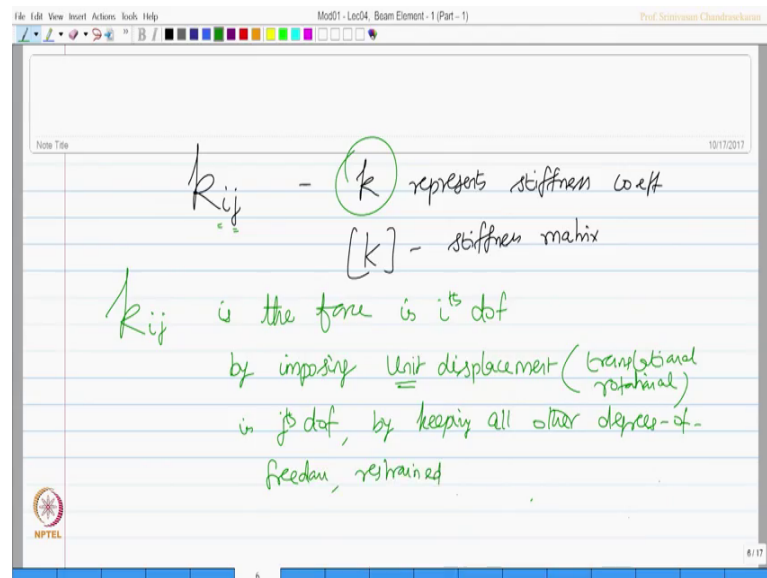 File Edit View Insert Actions Tools Help
Mod01 - Lec04, Beam Element - 1 (Part – 1)
Prof. Srinivasan Chandrasekaran
B I
Note Title
10/17/2017
kij - k represents stiffness coeff
[k] - stiffness matrix
kij is the force is ith dof
by imposing Unit displacement (translational
rotational)
in jth dof, by keeping all other degrees-of-
freedom, restrained
NPTEL
6 / 17
6